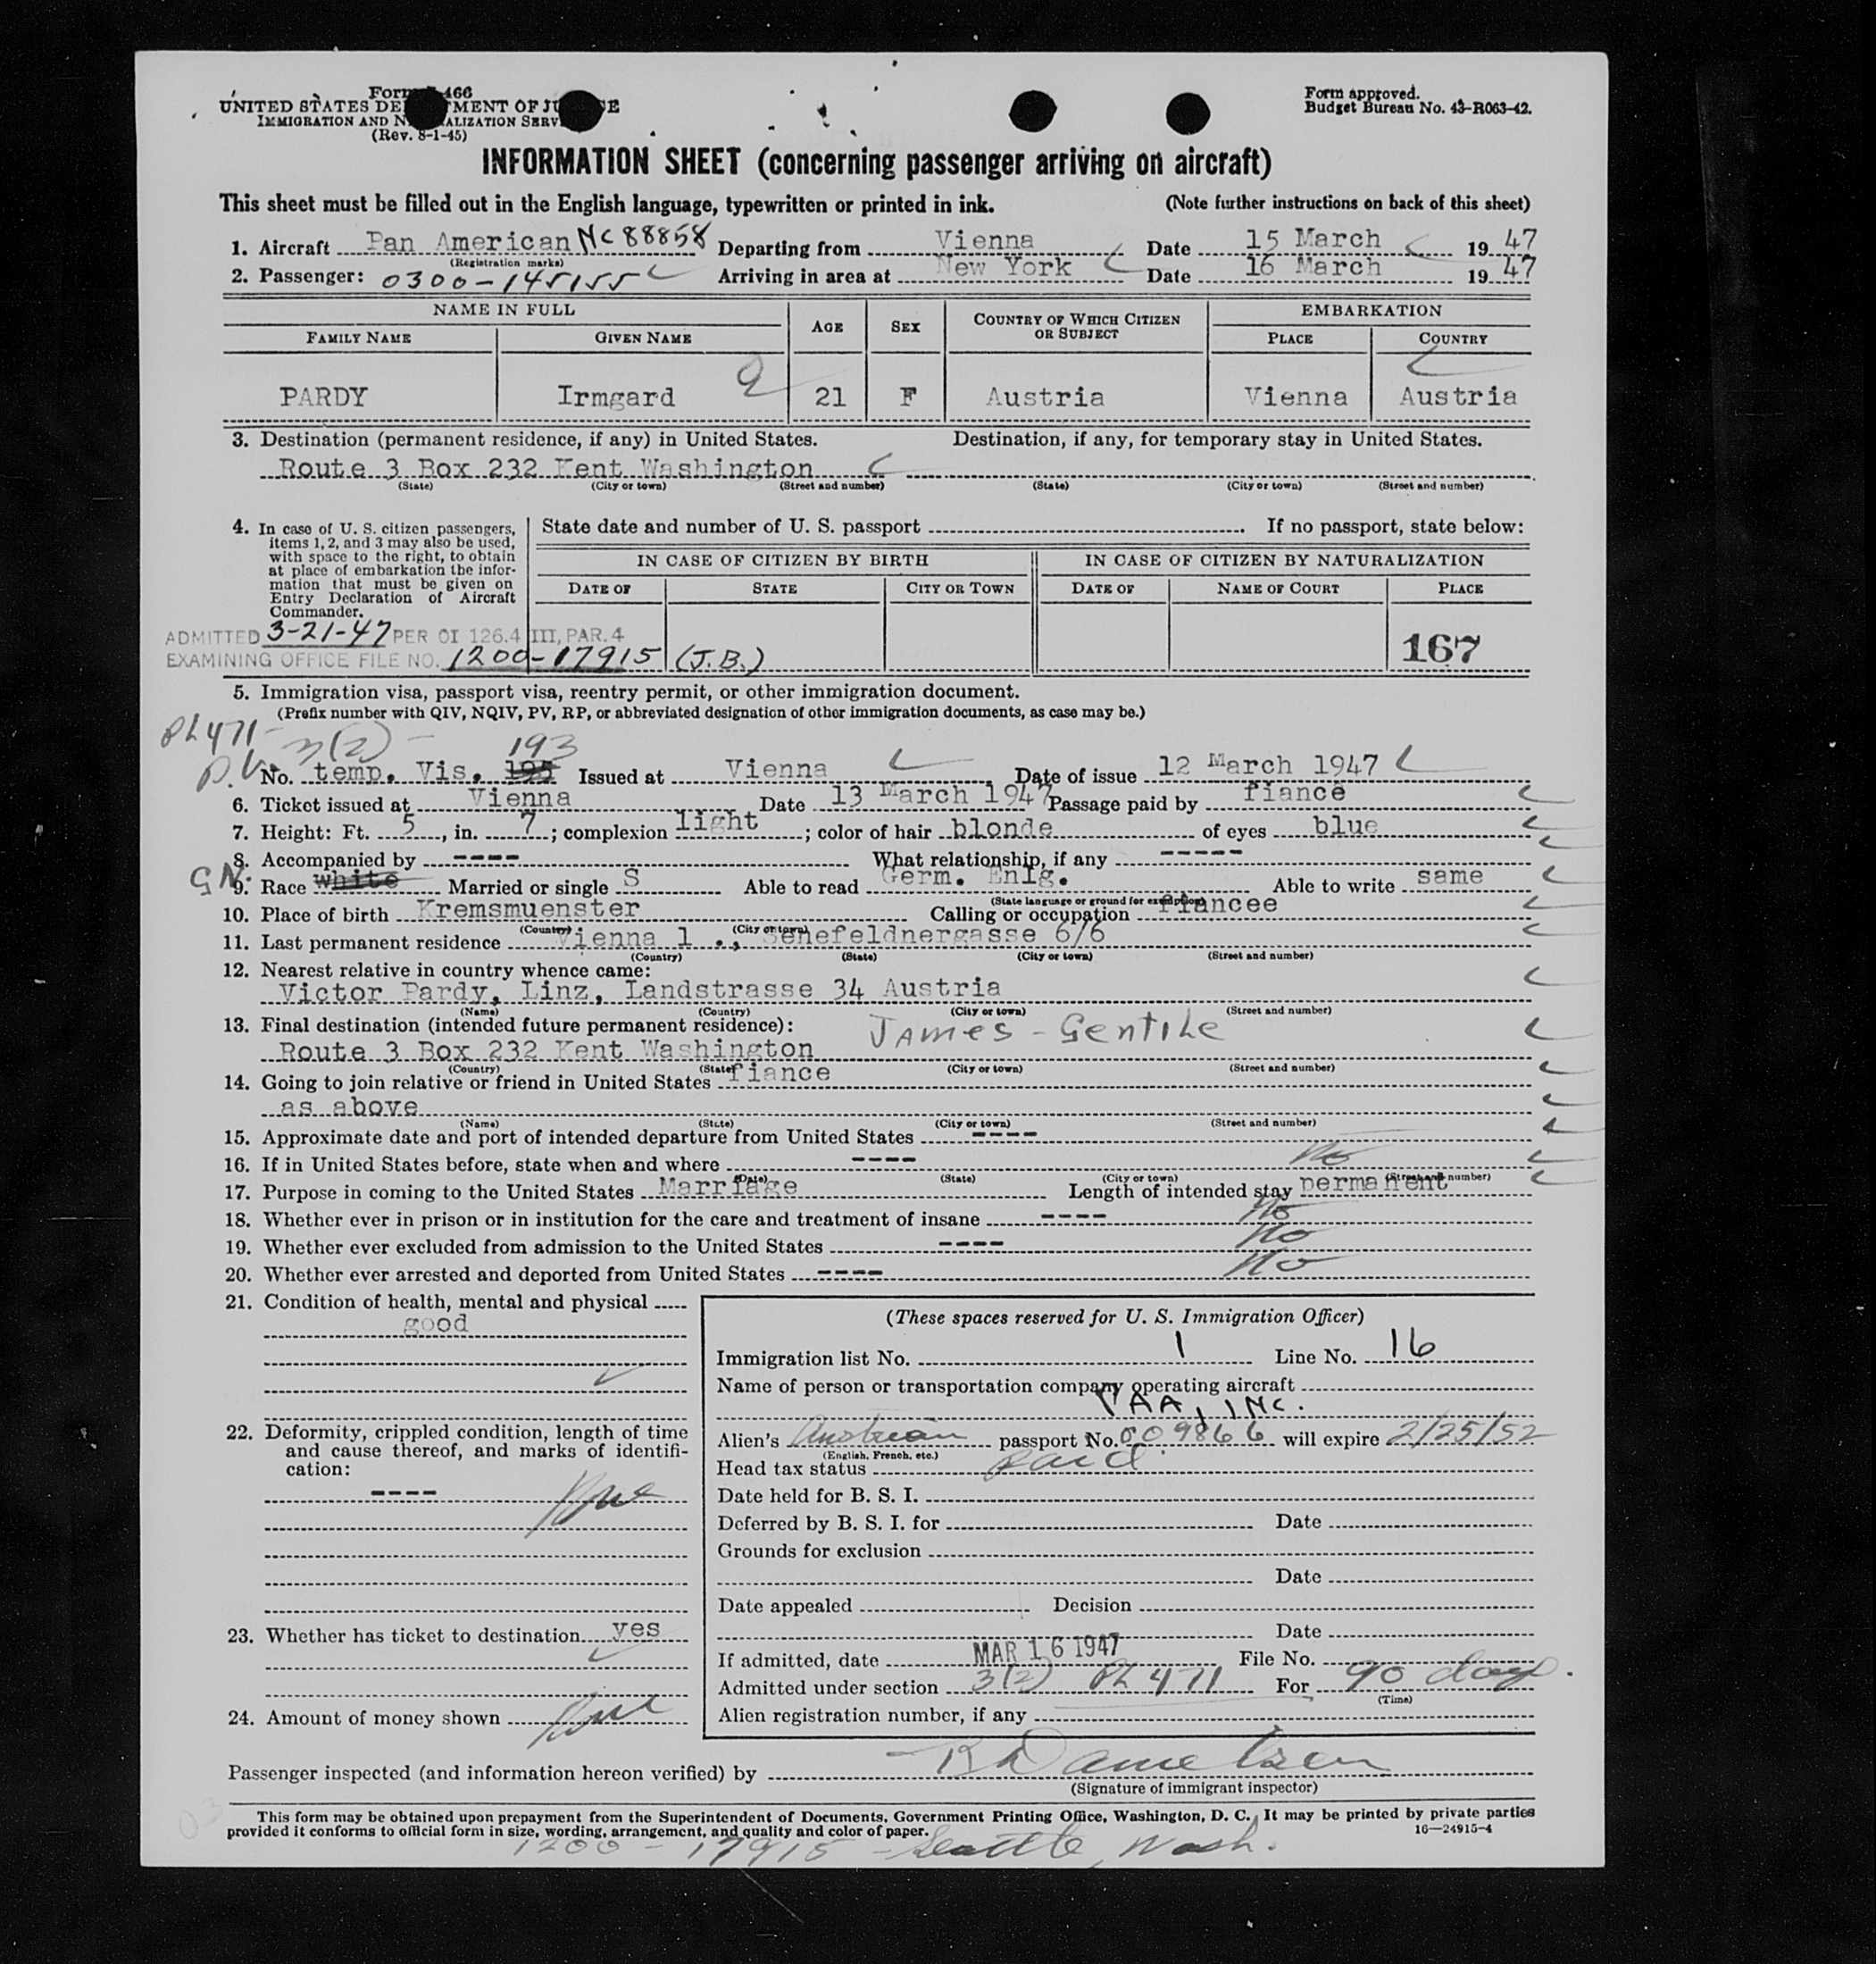 Form 466
UNITED STATES DEPARTMENT OF JUSTICE
IMMIGRATION AND NATURALIZATION SERVICE
(Rev. 8-1-45)
Form approved.
Budget Bureau No. 43-R063-42.
INFORMATION SHEET (concerning passenger arriving on aircraft)
This sheet must be filled out in the English language, typewritten or printed in ink. (Note further instructions on back of this sheet)
1. Aircraft Pan American NC 88858 Departing from Vienna Date 15 March 1947
(Registration marks)
2. Passenger: 0300-145155 Arriving in area at New York Date 16 March 1947
NAME IN FULL AGE SEX COUNTRY OF WHICH CITIZEN OR SUBJECT EMBARKATION
FAMILY NAME GIVEN NAME PLACE COUNTRY
PARDY Irmgard 21 F Austria Vienna Austria
3. Destination (permanent residence, if any) in United States. Destination, if any, for temporary stay in United States.
Route 3 Box 232 Kent Washington
(State) (City or town) (Street and number) (State) (City or town) (Street and number)
4. In case of U. S. citizen passengers,
items 1, 2, and 3 may also be used,
with space to the right, to obtain
at place of embarkation the infor-
mation that must be given on
Entry Declaration of Aircraft
Commander.
State date and number of U. S. passport . If no passport, state below:
IN CASE OF CITIZEN BY BIRTH IN CASE OF CITIZEN BY NATURALIZATION
DATE OF STATE CITY OR TOWN DATE OF NAME OF COURT PLACE
167
ADMITTED 3-21-47 PER OI 126.4 III, PAR. 4
EXAMINING OFFICE FILE NO. 1200-17915 (J.B.)
5. Immigration visa, passport visa, reentry permit, or other immigration document.
(Prefix number with QIV, NQIV, PV, RP, or abbreviated designation of other immigration documents, as case may be.)
PL 471-
3(2) - 193
P.V. No. temp. Vis. 195 Issued at Vienna Date of issue 12 March 1947
6. Ticket issued at Vienna Date 13 March 1947 Passage paid by fiancé
7. Height: Ft. 5, in. 7; complexion light; color of hair blonde of eyes blue
8. Accompanied by ---- What relationship, if any -----
GN. 9. Race white Married or single S Able to read Germ. Enlg. Able to write same
(State language or ground for exemption)
10. Place of birth Kremsmuenster Calling or occupation Fiancee
(Country) (City or town)
11. Last permanent residence Vienna 1 ., Senefeldnergasse 6/6
(Country) (State) (City or town) (Street and number)
12. Nearest relative in country whence came:
Victor Pardy, Linz, Landstrasse 34 Austria
(Name) (Country) (City or town) (Street and number)
13. Final destination (intended future permanent residence): JAMES - GENTILE
Route 3 Box 232 Kent Washington
(Country) (State) (City or town) (Street and number)
14. Going to join relative or friend in United States fiance
as above
(Name) (State) (City or town) (Street and number)
15. Approximate date and port of intended departure from United States ----
16. If in United States before, state when and where ---- No
(Date) (State) (City or town) (Street and number)
17. Purpose in coming to the United States Marriage Length of intended stay permanent
18. Whether ever in prison or in institution for the care and treatment of insane ---- No
19. Whether ever excluded from admission to the United States ---- No
20. Whether ever arrested and deported from United States ---- No
21. Condition of health, mental and physical
good
22. Deformity, crippled condition, length of time
and cause thereof, and marks of identifi-
cation:
----
23. Whether has ticket to destination yes
24. Amount of money shown
(These spaces reserved for U. S. Immigration Officer)
Immigration list No. 1 Line No. 16
Name of person or transportation company operating aircraft
PAA, INC.
Alien's Austrian passport No. 009866 will expire 2/25/52
(English, French, etc.)
Head tax status Paid
Date held for B. S. I.
Deferred by B. S. I. for Date
Grounds for exclusion
Date
Date appealed Decision
Date
If admitted, date MAR 16 1947 File No.
Admitted under section 3(2) PL 471 For 90 days.
(Time)
Alien registration number, if any
Passenger inspected (and information hereon verified) by
(Signature of immigrant inspector)
This form may be obtained upon prepayment from the Superintendent of Documents, Government Printing Office, Washington, D. C. It may be printed by private parties
provided it conforms to official form in size, wording, arrangement, and quality and color of paper. 16—24915-4
1200 - 17915 - Seattle, Wash.